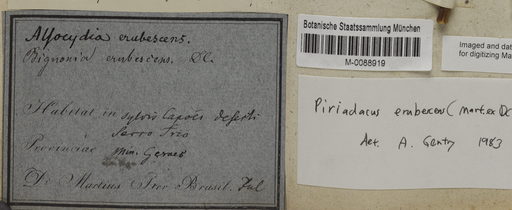 Alsocydia erubescens.
Bignonia erubescens. DC.
Habitat in sylvis Capões deserti
Serro Frio
Provinciae Min. Geraës
Dr. Martius Iter Brasil. Jul
Botanische Staatssammlung München
M-0088919
Imaged and dat
for digitizing Ma
Piriadacus erubescens (Mart. ex DC
det. A. Gentry 1983